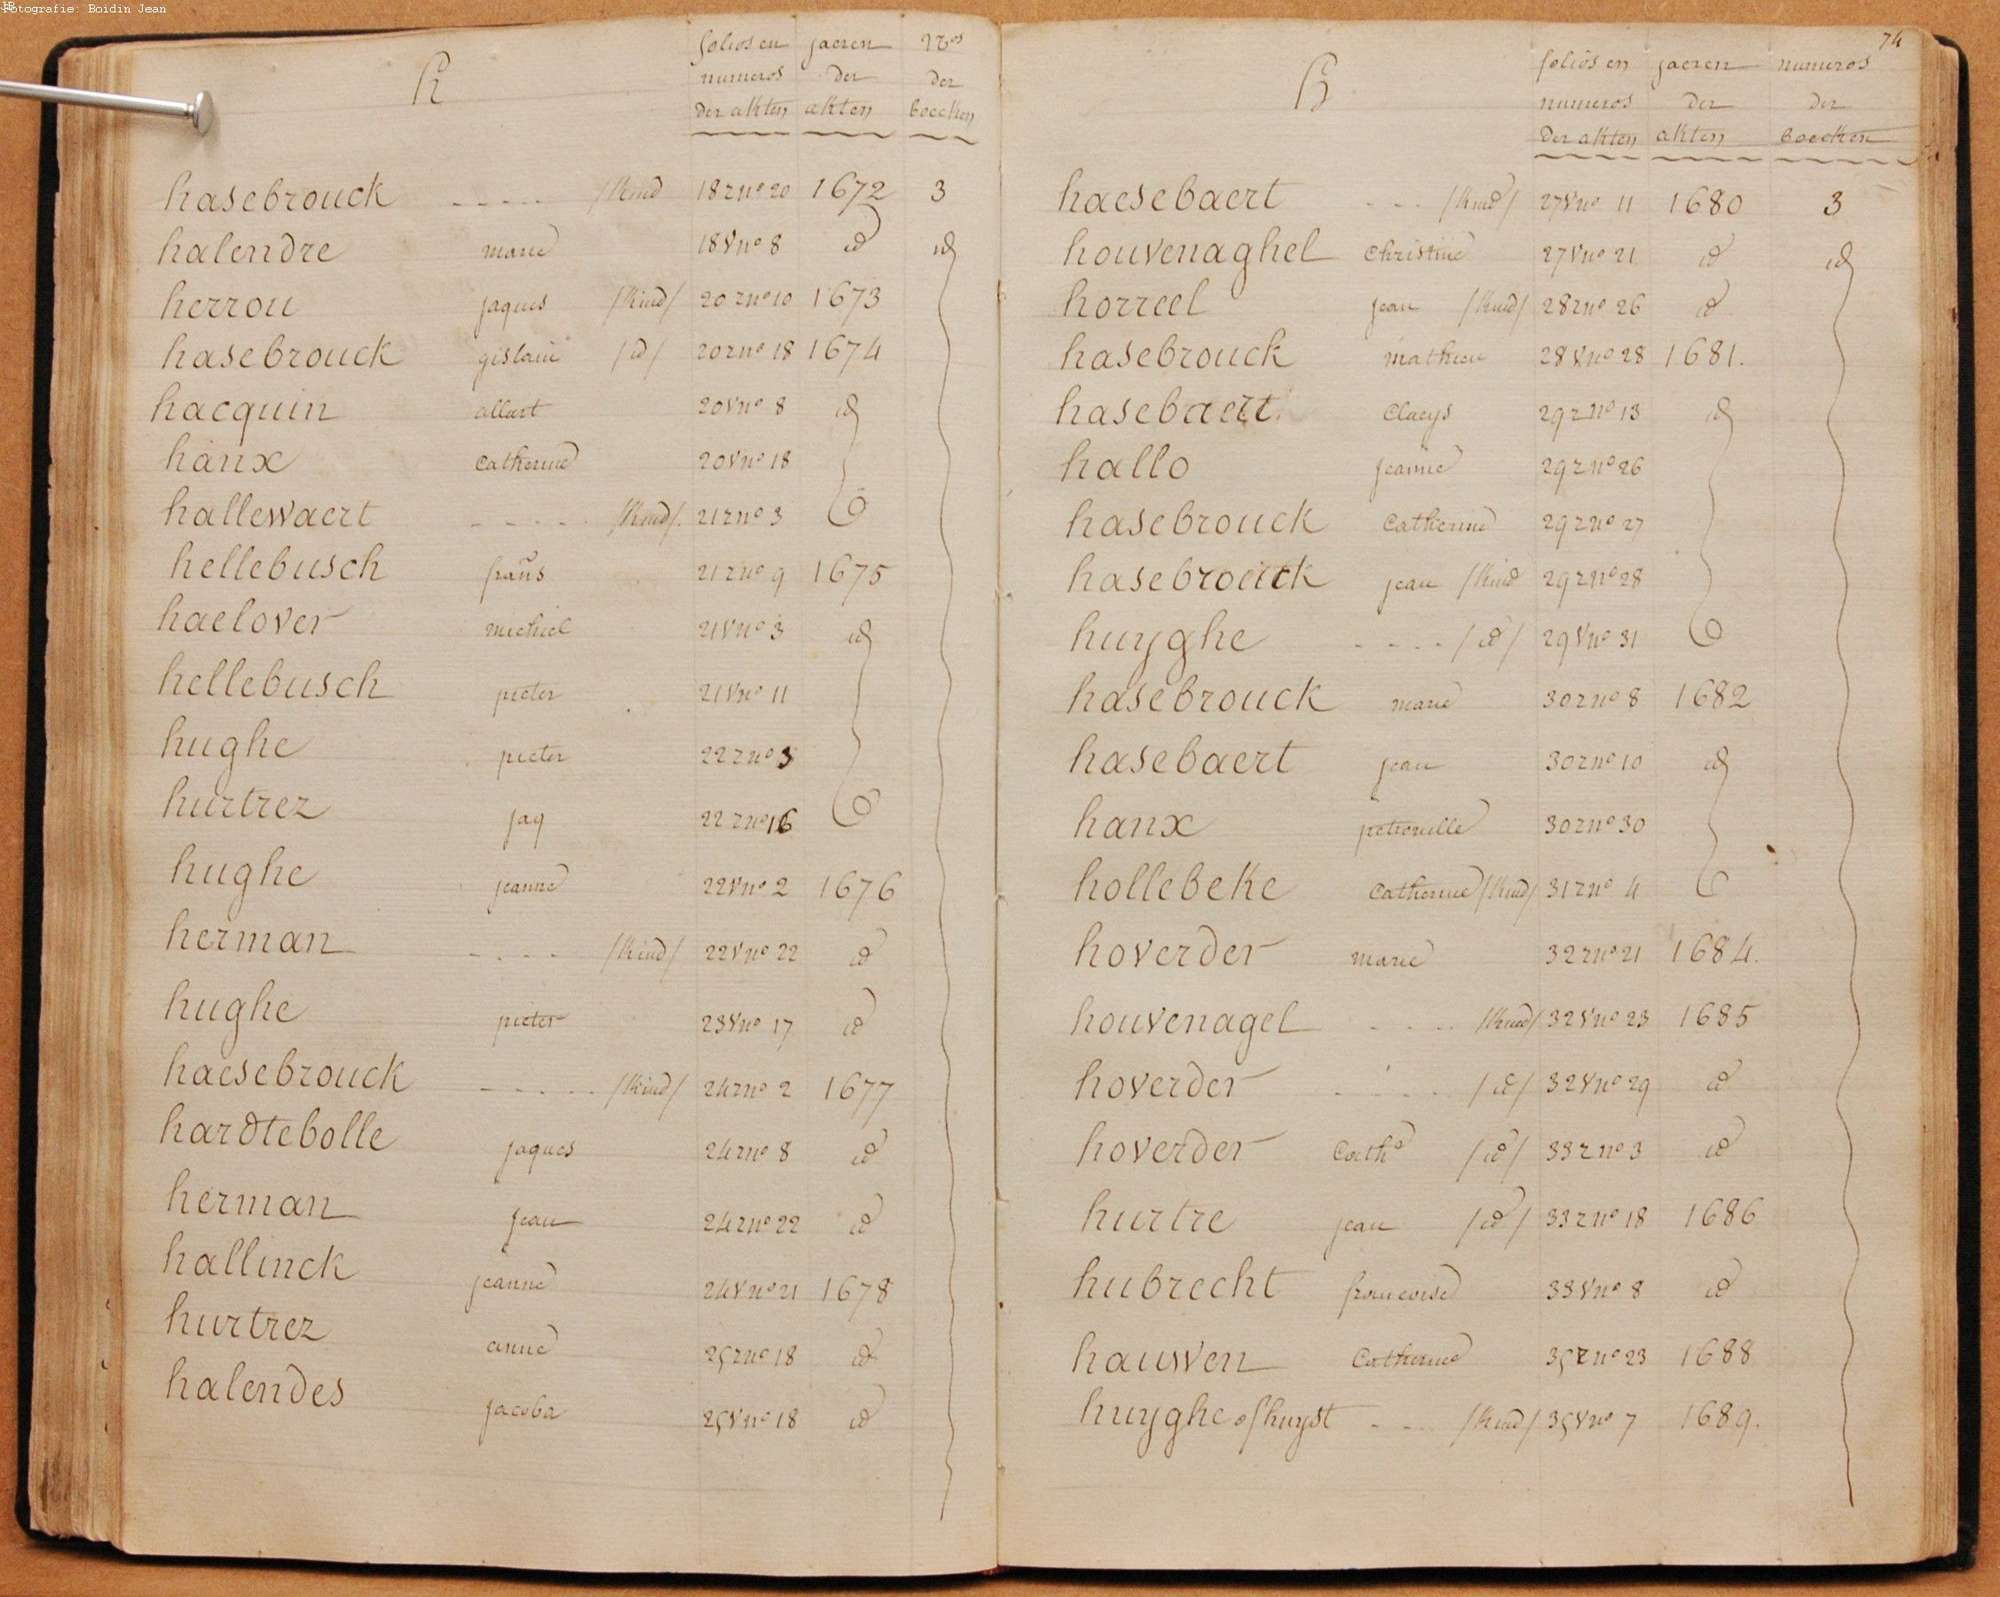 Fotografie: Boidin Jean
H folios en jaeren nros
numeros der der
der akten akten boecken
hasebrouck - - - - - /kind 18 r no 20 1672 3
halendre marie 18 v no 8 id id
herrou jaques /kind/ 20 r no 10 1673
hasebrouck gislain /id/ 20 r no 18 1674
hacquin allart 20 v no 8 id
hanx Catherine 20 v no 18
hallewaert - - - - - /kind/. 21 r no 3
hellebusch frans 21 r no 9 1675
haelover michiel 21 v no 3 id
hellebusch pieter 21 v no 11
hughe pieter 22 r no 3
hurtrez jaq 22 r no 16
hughe jeanne 22 v no 2 1676
herman - - - - /kind/ 22 v no 22 id
hughe pieter 23 v no 17 id
haesebrouck - - - - - /kind/ 24 r no 2 1677
hardtebolle jaques 24 r no 8 id
herman jean 24 r no 22 id
hallinck jeanne 24 v no 21 1678
hurtrez anne 25 r no 18 id
halendes jacoba 25 v no 18 id
74
H folios en jaeren numeros
numeros der der
der akten akten boecken
haesebaert - - - /kind/ 27 v no 11 1680 3
houvenaghel Christine 27 v no 21 id id
horreel jean /kind/ 28 r no 26 id
hasebrouck mathieu 28 v no 28 1681.
hasebaert Claeys 29 r no 13 id
hallo jeanne 29 r no 26
hasebrouck Catherine 29 r no 27
hasebrouck jean /kind 29 r no 28
huyghe - - - - /id/ 29 v no 31
hasebrouck marie 30 r no 8 1682
hasebaert jean 30 r no 10 id
hanx petronille 30 r no 30
hollebeke Catherine /kind/ 31 r no 4
hoverder marie 32 r no 21 1684.
houvenagel - - - - /kind/ 32 v no 23 1685
hoverder - - - - - /id/ 32 v no 29 id
hoverder Cathe /id/ 33 r no 3 id
hurtre jean /id/ 33 r no 18 1686
hubrecht francoise 33 v no 8 id
hauwen Catherine 35 r no 23 1688
huyghe of huyst - - - /kind/ 35 v no 7 1689.